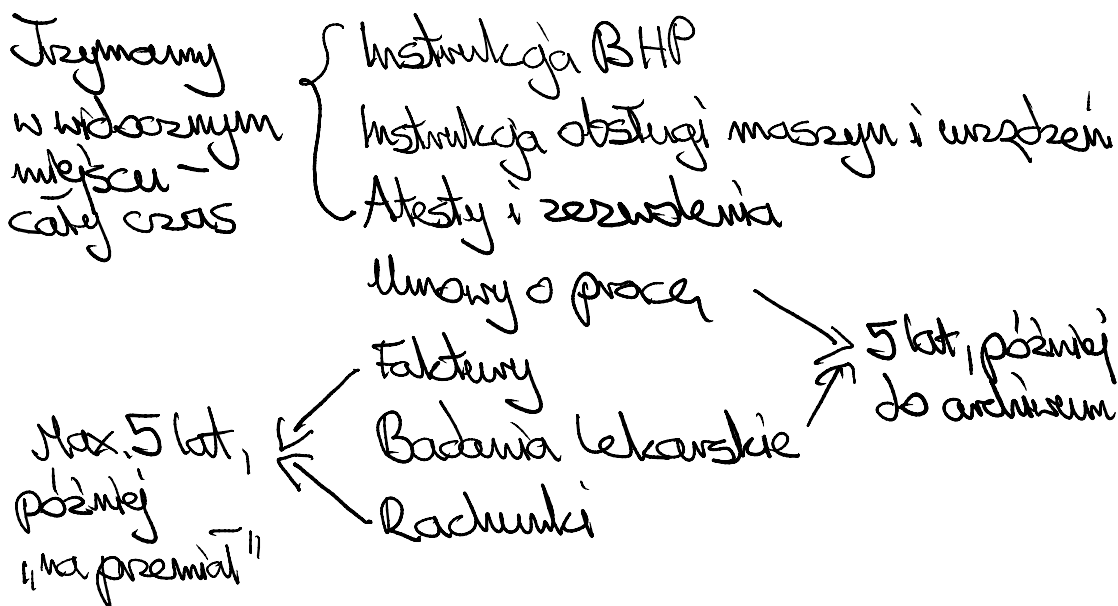 Trzymamy
w widocznym
miejscu -
cały czas
Instrukcja BHP
Instrukcja obsługi maszyn i urządzeń
Atesty i zezwolenia
Umowy o pracę
Faktury
Badania lekarskie
Rachunki
5 lat, później
do archiwum
Max. 5 lat,
później
„na przemiał"